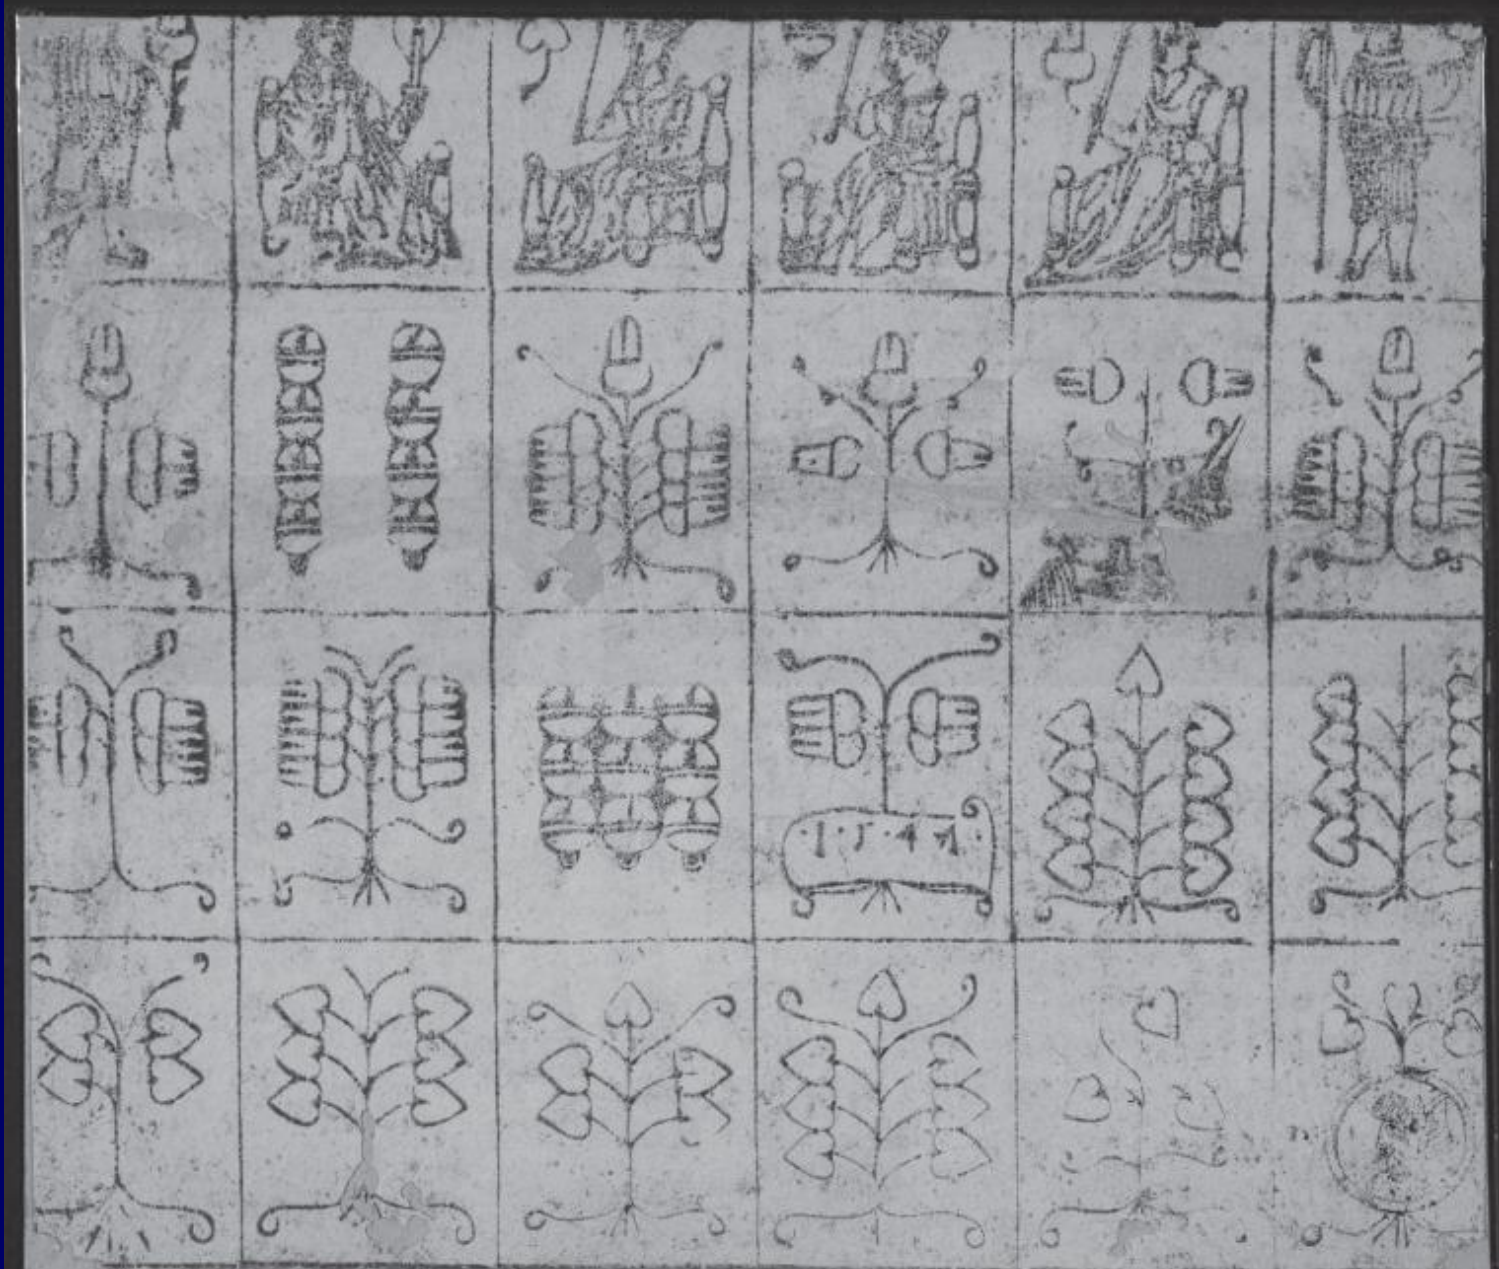 ·1·5·4·7·